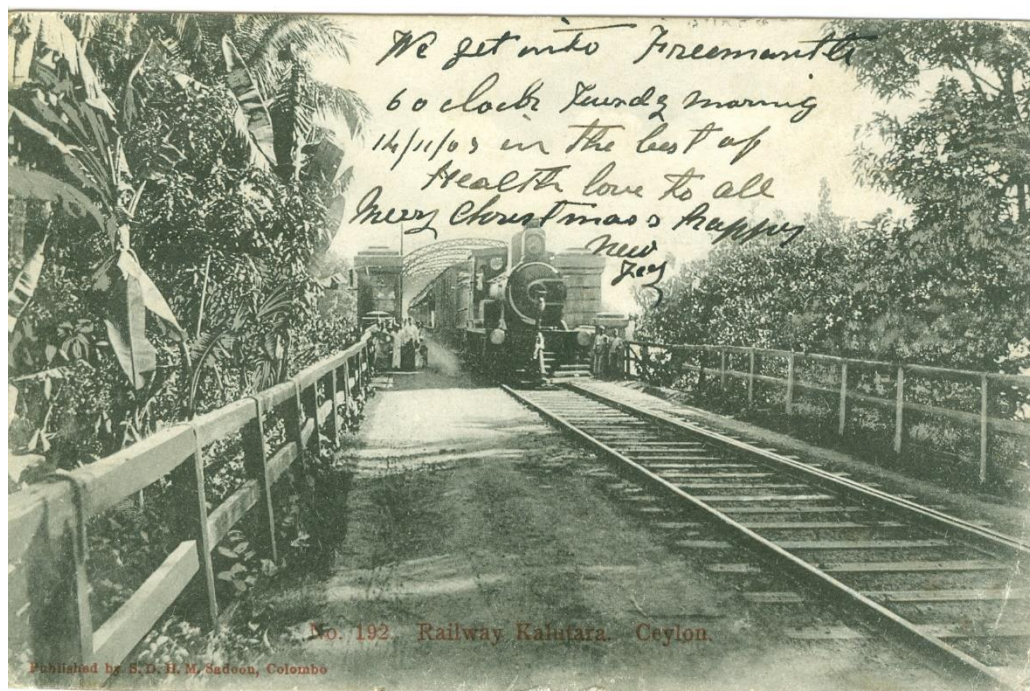 We get into Freemantle
6 o clock morning
14/11/03 in the best of
Health love to all
Merry Christmas & happy
new
No. 192. Railway Kalutara. Ceylon.
Published by S. D. H. M. Sadoon, Colombo